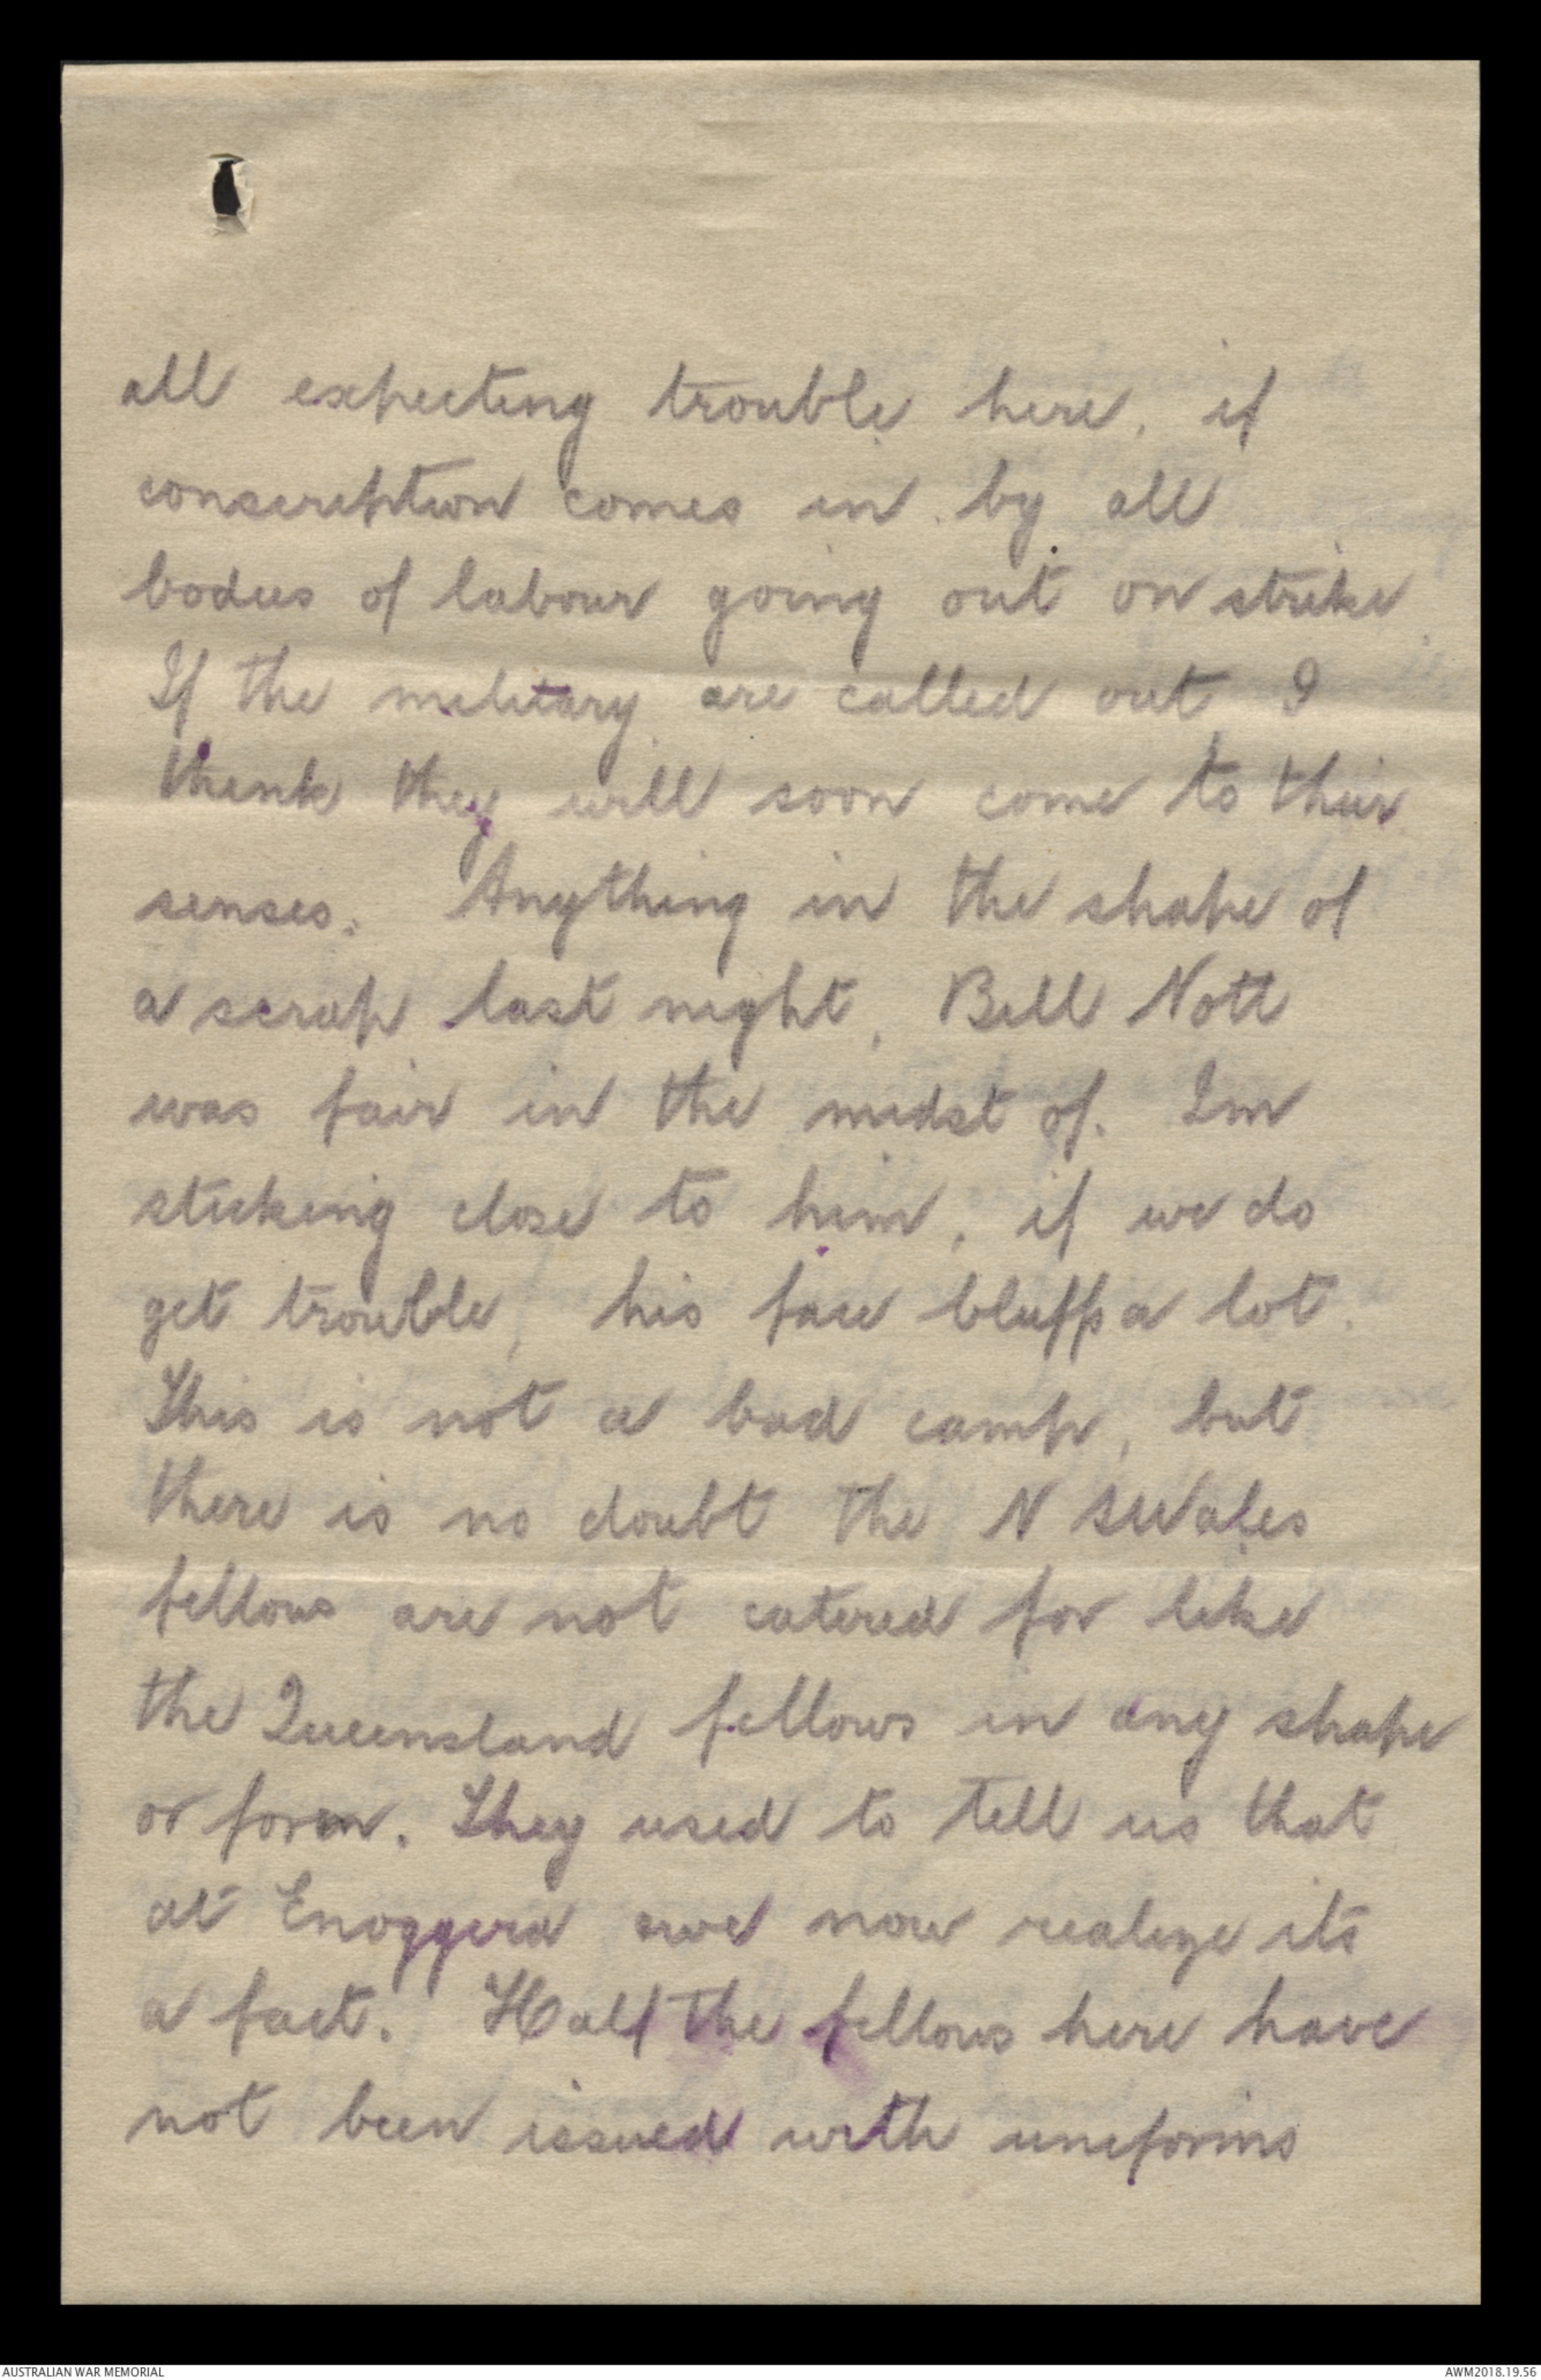 all expecting trouble here, if
conscription comes in by all
bodies of labour going out on strike.
If the military are called out I
think they will soon come to their
senses. Anything in the shape of
a scrap last night, Bill Nott
was fair in the midst of. Im
sticking close to him, if we do
get trouble, his face bluffs a lot.
This is not a bad camp, but
there is no doubt the N S Wales
fellows are not catered for like
the Queensland fellows in any shape
or form. They used to tell us that
at Enoggera & we now realize its
a fact. Half the fellows here have
not been issued with uniforms
AUSTRALIAN WAR MEMORIAL
AWM2018.19.56